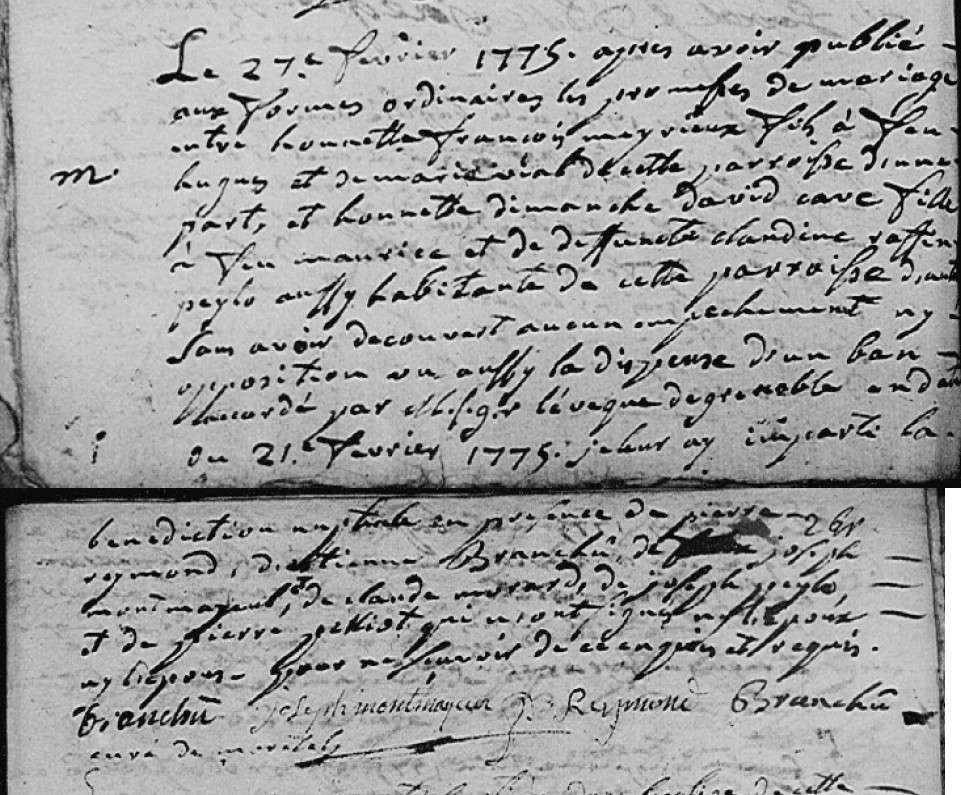 Le 27.e fevrier 1775. apres avoir publié
aux formes ordinaires les promesses de mariage
entre honnette françois meyrieux fils à feu
m. hugues et de marie vial de cette parroisse d'une
part, et honnette dimanche david cave fille
à feu maurice et de deffuncte claudine raffin
peylo aussy habitante de cette parroisse d'autre
sans avoir decouvert aucun empechement ny
opposition vu aussy la dispense d'un ban
accordé par Mgr l'éveque de grenoble en datte
du 21.e fevrier 1775. je leur ay imparti la
benediction nuptiale en presence de pierre
reymond, d'etienne Branchû, de joseph
montmayeul, et de claude morard, de joseph peylo,
et de pierre qui n'ont signé ny l'epoux
ny l'epouse pour ne sçavoir de ce enquis et requis.
Branchû joseph montmayeur P Reymond Branchû
curé de